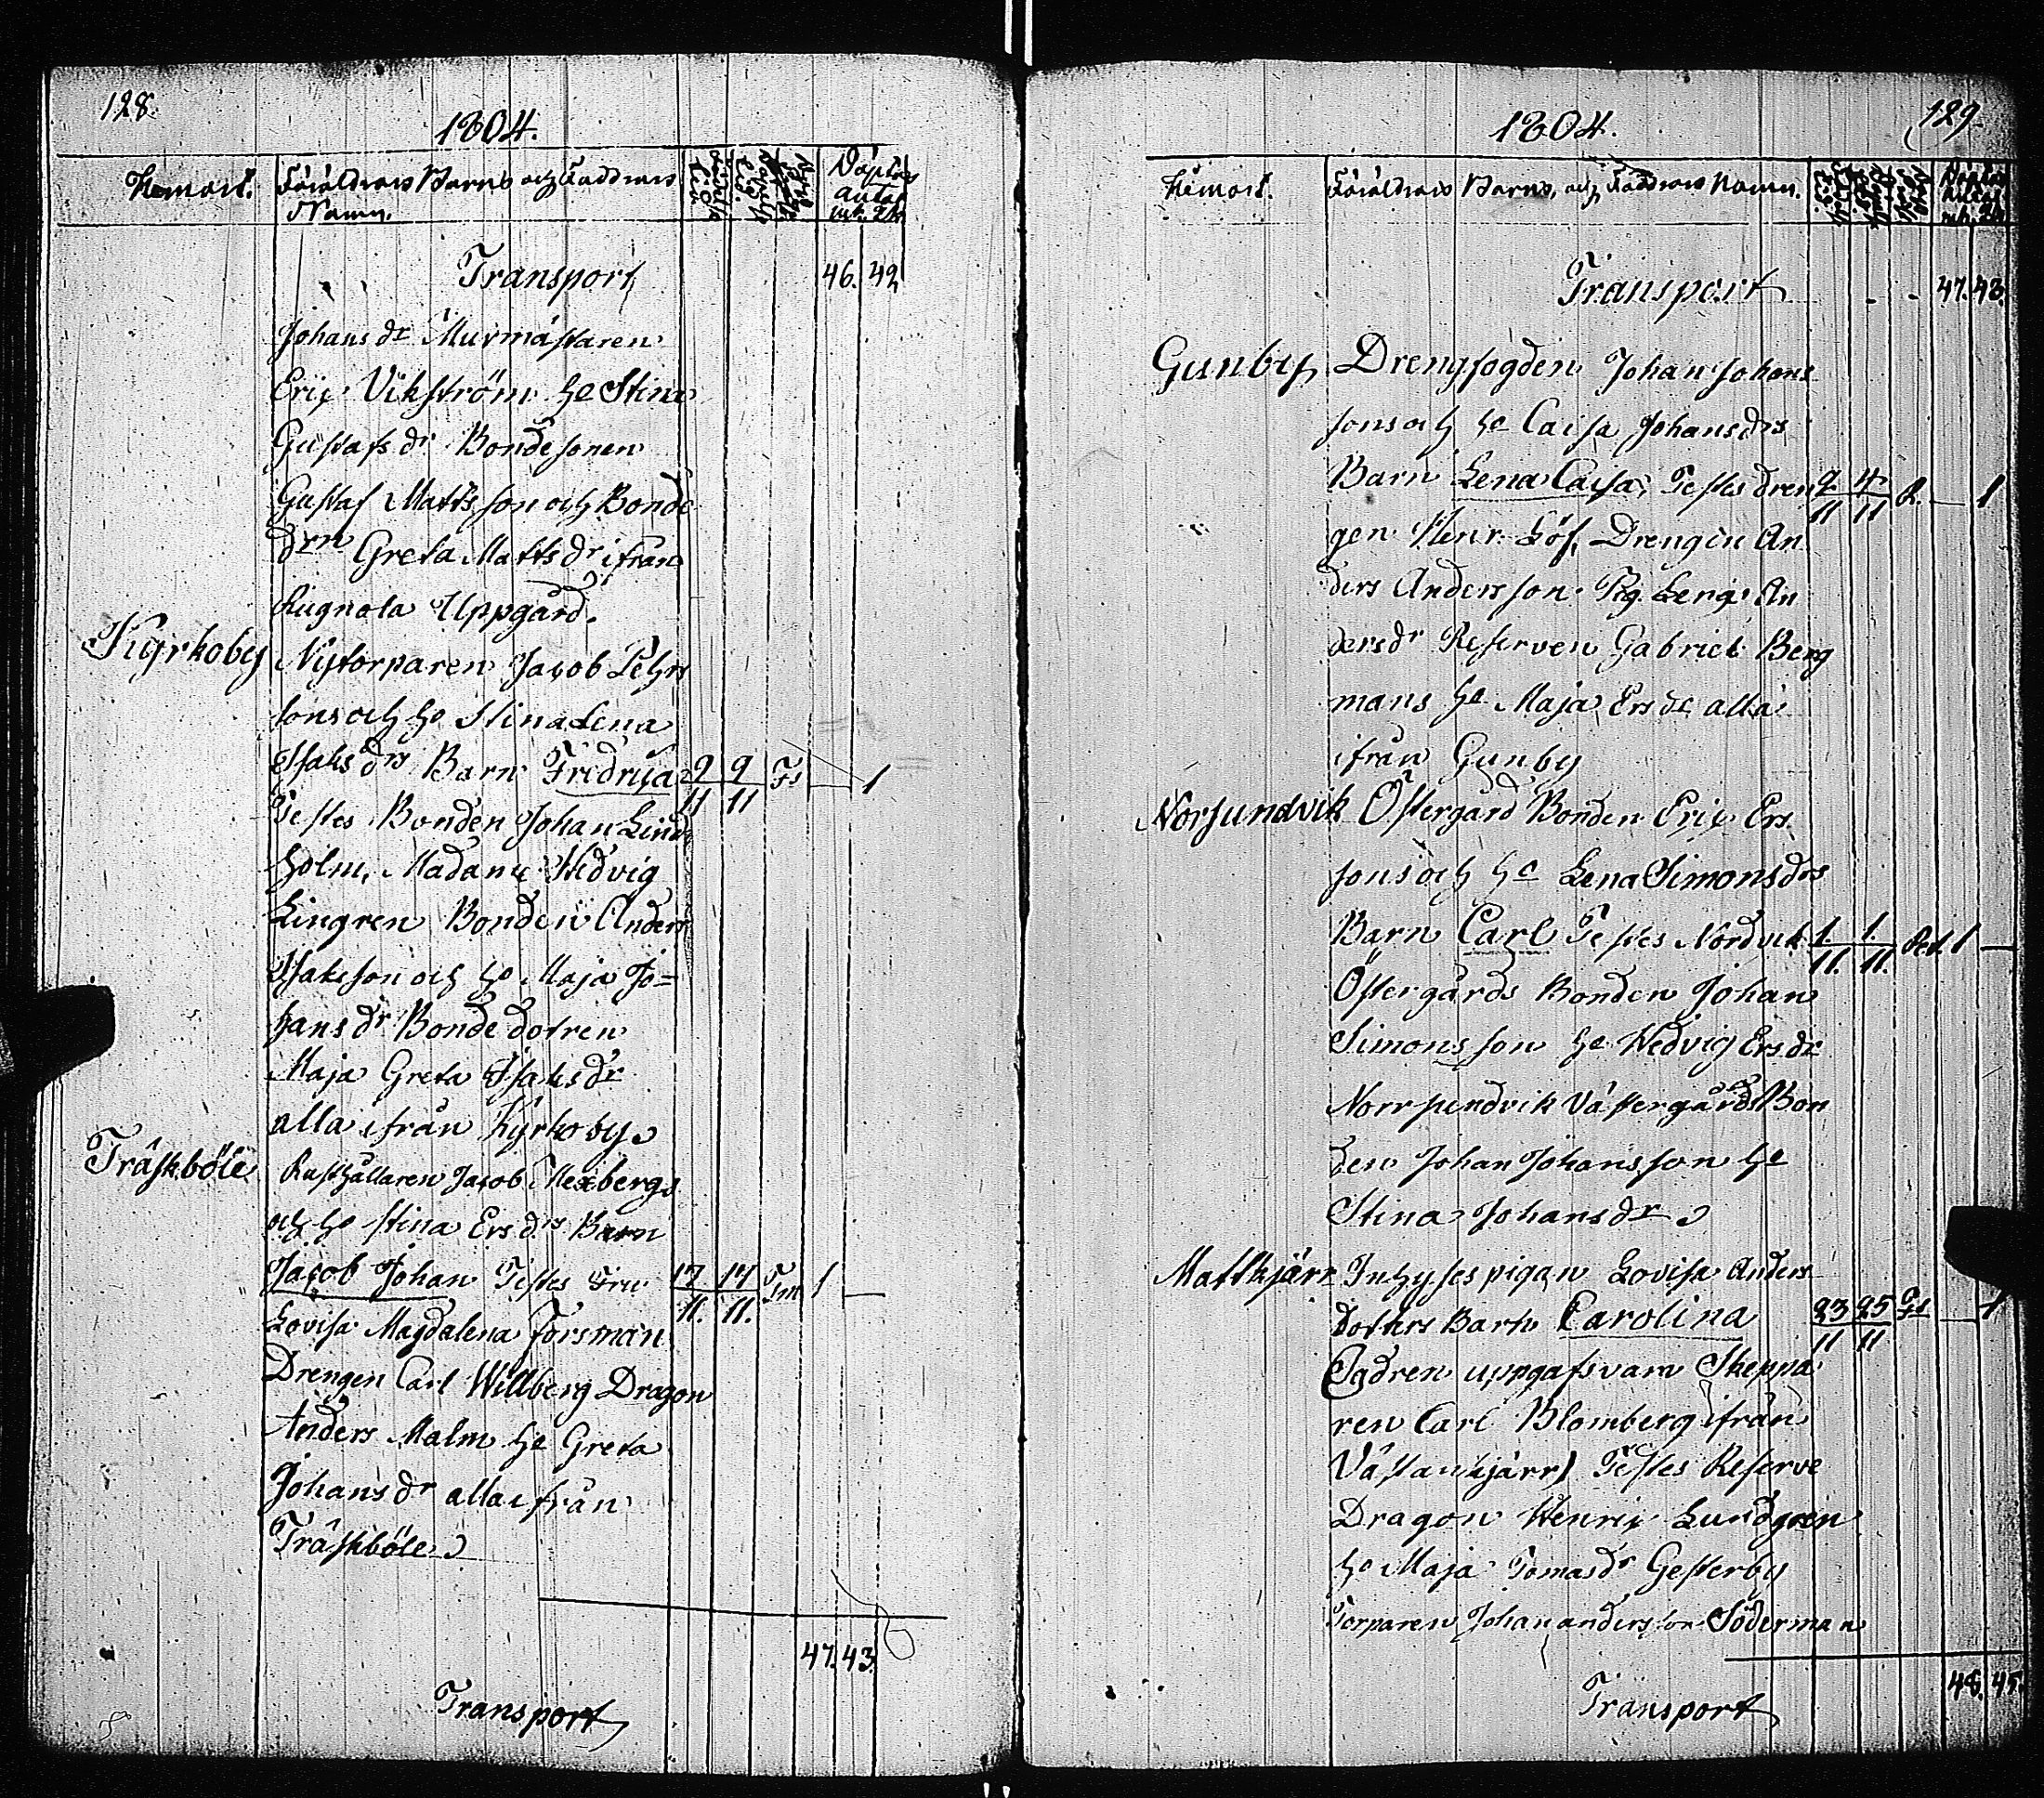 128.
1804.
Hemort. Föräldrars Barns och Faddrars
Namn.
Döptes
antal
mk. qk.
Transport 46. 42
Johans dr Murmästaren
Eric Vikström he Stina
Gustafs dr Bondesonen
Gustaf Matts son och Bonde
drn Greta Matts dr ifrån
Rugnola Uppgård.
Kyrkoby Nytorparen Jacob Pehrs
sons och ho Stina Lena
Isaks drs Barn Fridrica 9/11 9/11 1
Testes Bonden Johan Lind
holm, Madame Hedvig
Lingren Bonden Anders
Isaksson och ho Maja Jo-
hans dr Bonde dotren
Maja Greta Isaks dr
alla ifrån Kyrkoby
Träskböle Rusthållaren Jacob Mexbergs
och ho Stina Ers drs Barn
Jacob Johan Testes Fru 17/11. 17/11. 1 —
Lovisa Magdalena Forsman
Drengen Carl Willberg Dragon
Anders Malm he Greta
Johans dr alla ifrån
Träskböle
47. 43.
Transport
129.
1804.
Hemort. Föräldrars Barns, och Faddrars Namn.
Transport - - 47. 43.
Gunby Drengfogden Johan Johans
sons och he Caisa Johans drs
Barn Lena Caisa, Testes dren 2/11 4/11 R. — 1
gen Henr. Löf, Drengen An
ders Andersson. Pig. Lena An
ders dr Reserven Gabriel Berg
mans he Maja Ers dr alla
ifrån Gunby
Norsundvik Östergård Bonden Eric Ers
sons och he Lena Simons drs
Barn Carl Testes Nordvik 1/11. 1/11. 1 —
Östergårds Bonden Johan
Simons son he Hedvig Ers dr
Norrsundvik Västergårds Bon
den Johan Johansson he
Stina Johans dr
Mattkjärr Inhyses pigan Lovisa Anders
dotters Barn Carolina 23/11 25/11 — 1
Fadren uppgafs vara Skeppa
ren Carl Blomberg ifrån
Västankjärr) Testes Reserve
Dragon Henric Lundgren
ho Maja Tomas dr Gesterby
Torparen Johan anders son Söderman
48. 45.
Transport